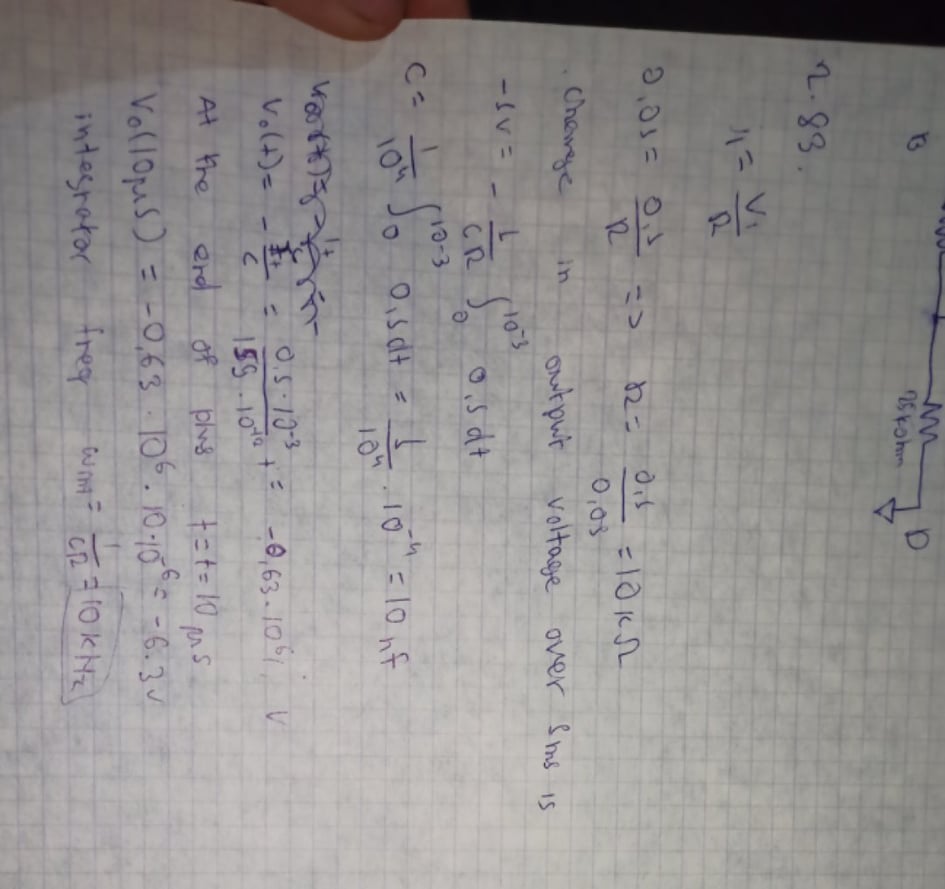 B
25 kohm
D
2.83.
i₁ = V₁/R
0,05 = 0,5/R => R = 0,5/0,05 = 10 kΩ
Change in output voltage over 5ms is
-5V = - 1/CR ∫₀^10⁻³ 0,5 dt
C = 1/10⁴ ∫₀^10⁻³ 0,5dt = 1/10⁴ · 10⁻⁴ = 10 nF
V₀(t) = - /C = 0,5·10⁻³/ ·10⁻¹² t = -0,63·10⁶; V
At the end of plus t=t=10 μs
V₀(10μs) = -0,63·10⁶·10·10⁻⁶ = -6.3V
integrator freq ωm = 1/CR = 10 kHz